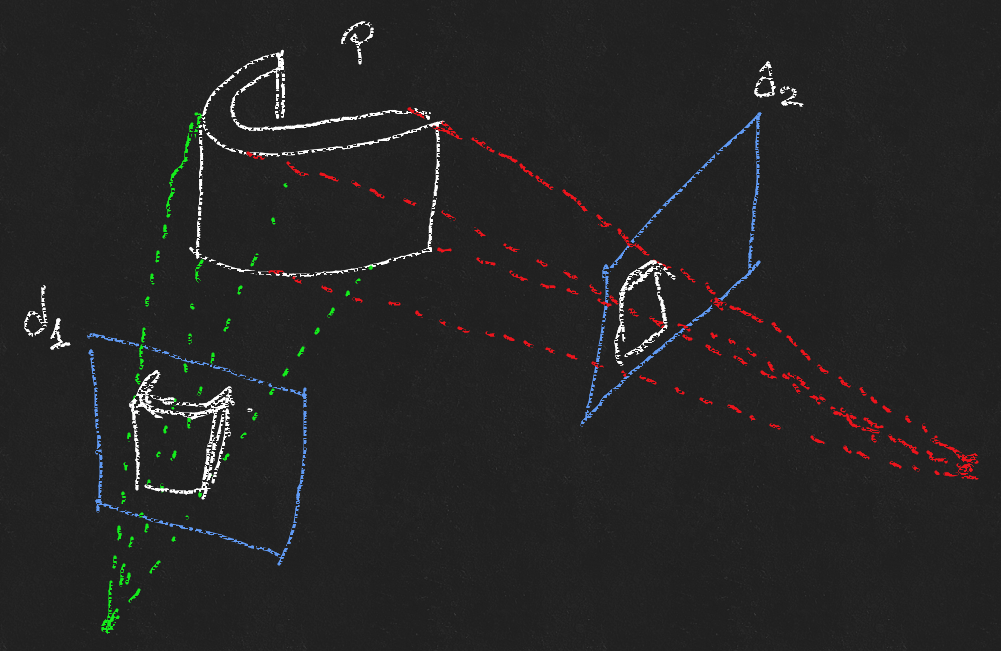 P
d2
d1